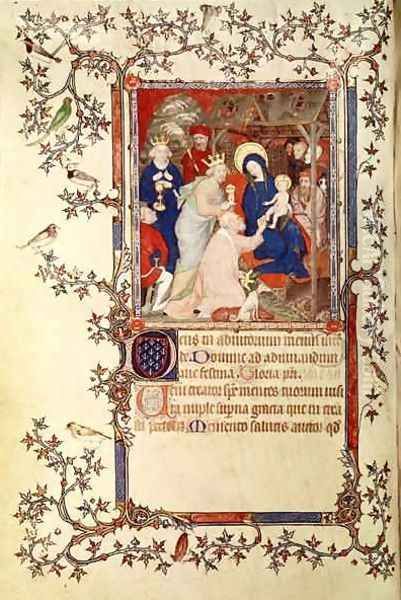 Deus in adiutorium meum in
de Domine ad adiuvandum
me festina Gloria pri
Veni creator spe mentes tuorum visi
ta imple superna gracia que tu crea
sti pectora Memento salutis auctor qd